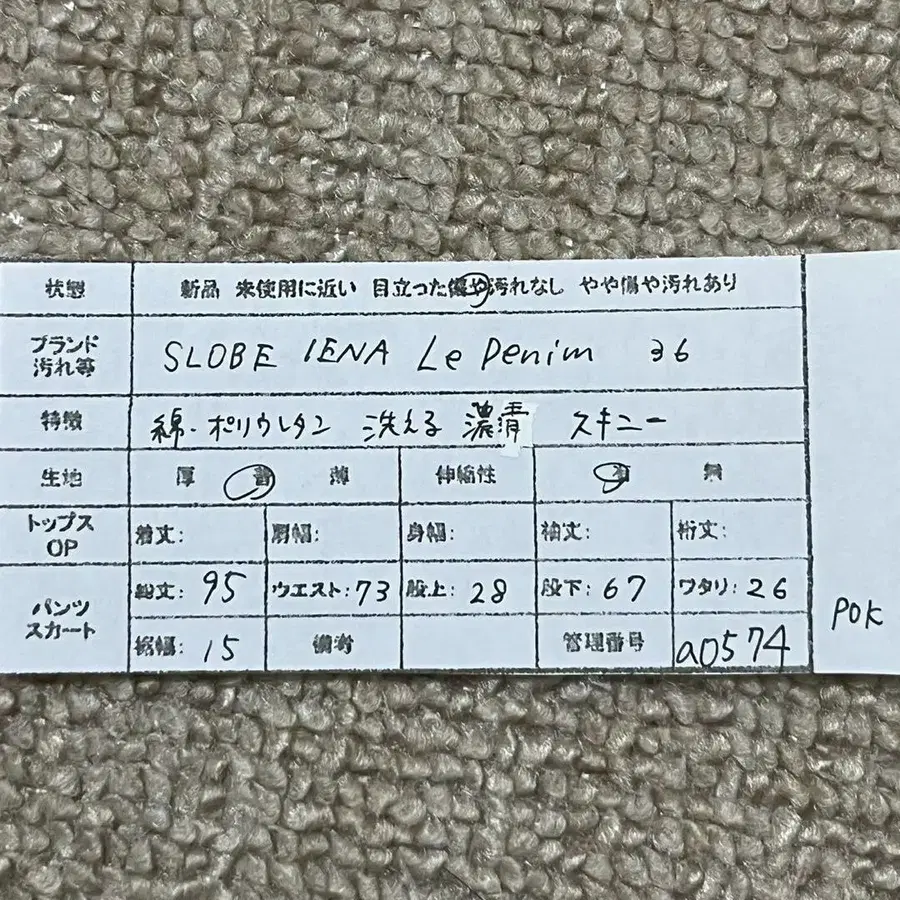 状態 新品 未使用に近い 目立った傷や汚れなし やや傷や汚れあり
ブランド 汚れ等 SLOBE IENA Le Denim 36
特徴 綿・ポリウレタン 洗える 濃青 スキニー
生地 厚 普 薄 伸縮性 有 無
トップス OP 着丈: 肩幅: 身幅: 袖丈: 裄丈:
パンツ スカート 総丈: 95 ウエスト: 73 股上: 28 股下: 67 ワタリ: 26
裾幅: 15 備考 管理番号 a0574
POK